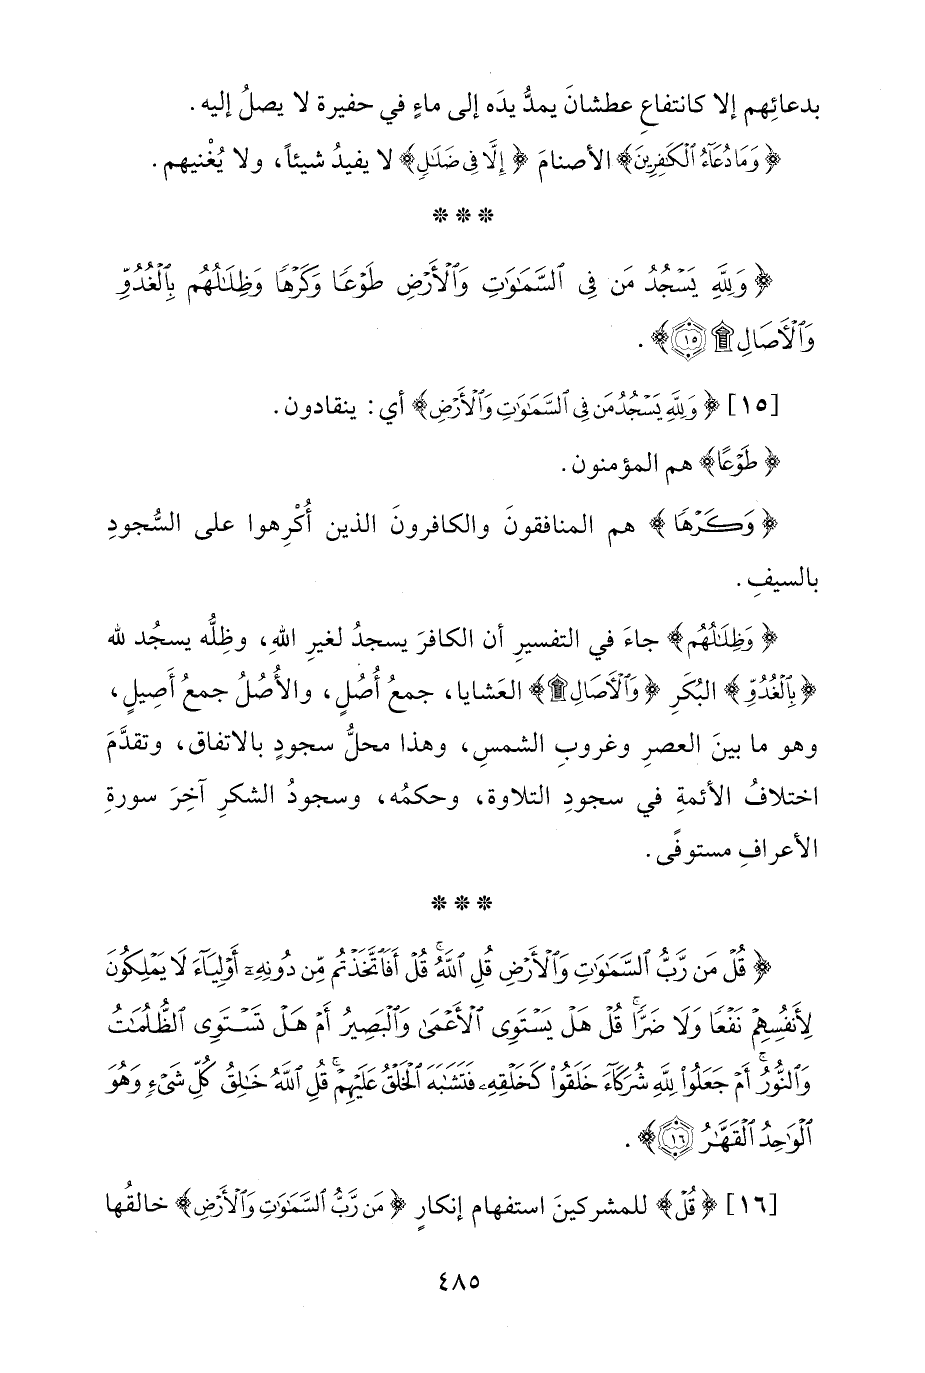 بدعائِهم إلا كانتفاعِ عطشانَ يمدُّ يدَه إلى ماءٍ في حفيرة لا يصلُ إليه.
﴿وَمَا دُعَآءُ ٱلْكَٰفِرِينَ﴾ الأصنامَ ﴿إِلَّا فِى ضَلَٰلٍ﴾ لا يفيدُ شيئاً، ولا يُغْنيهم.
* * *
﴿وَلِلَّهِ يَسْجُدُ مَن فِى ٱلسَّمَٰوَٰتِ وَٱلْأَرْضِ طَوْعًا وَكَرْهًا وَظِلَٰلُهُم بِٱلْغُدُوِّ
وَٱلْأَصَالِ۩ ﴿١٥﴾﴾.
[١٥] ﴿وَلِلَّهِ يَسْجُدُ مَن فِى ٱلسَّمَٰوَٰتِ وَٱلْأَرْضِ﴾ أي: ينقادون.
﴿طَوْعًا﴾ هم المؤمنون.
﴿وَكَرْهًا﴾ هم المنافقونَ والكافرونَ الذين أُكْرِهوا على السُّجودِ
بالسيفِ.
﴿وَظِلَٰلُهُم﴾ جاءَ في التفسيرِ أن الكافرَ يسجدُ لغيرِ اللهِ، وظِلُّه يسجُد لله
﴿بِٱلْغُدُوِّ﴾ البُكَرِ ﴿وَٱلْأَصَالِ۩﴾ العَشايا، جمعُ أُصُلٍ، والأُصُلُ جمعُ أَصِيلٍ،
وهو ما بينَ العصرِ وغروبِ الشمسِ، وهذا محلُّ سجودٍ بالاتفاق، وتقدَّمَ
اختلافُ الأئمةِ في سجودِ التلاوة، وحكمُه، وسجودُ الشكرِ آخِرَ سورةِ
الأعرافِ مستوفًى.
* * *
﴿قُلْ مَن رَّبُّ ٱلسَّمَٰوَٰتِ وَٱلْأَرْضِ قُلِ ٱللَّهُ ۚ قُلْ أَفَٱتَّخَذْتُم مِّن دُونِهِۦٓ أَوْلِيَآءَ لَا يَمْلِكُونَ
لِأَنفُسِهِمْ نَفْعًا وَلَا ضَرًّا ۚ قُلْ هَلْ يَسْتَوِى ٱلْأَعْمَىٰ وَٱلْبَصِيرُ أَمْ هَلْ تَسْتَوِى ٱلظُّلُمَٰتُ
وَٱلنُّورُ ۗ أَمْ جَعَلُوا۟ لِلَّهِ شُرَكَآءَ خَلَقُوا۟ كَخَلْقِهِۦ فَتَشَٰبَهَ ٱلْخَلْقُ عَلَيْهِمْ ۚ قُلِ ٱللَّهُ خَٰلِقُ كُلِّ شَىْءٍ وَهُوَ
ٱلْوَٰحِدُ ٱلْقَهَّٰرُ ﴿١٦﴾﴾.
[١٦] ﴿قُلْ﴾ للمشركينَ استفهام إنكارٍ ﴿مَن رَّبُّ ٱلسَّمَٰوَٰتِ وَٱلْأَرْضِ﴾ خالقُها
٤٨٥